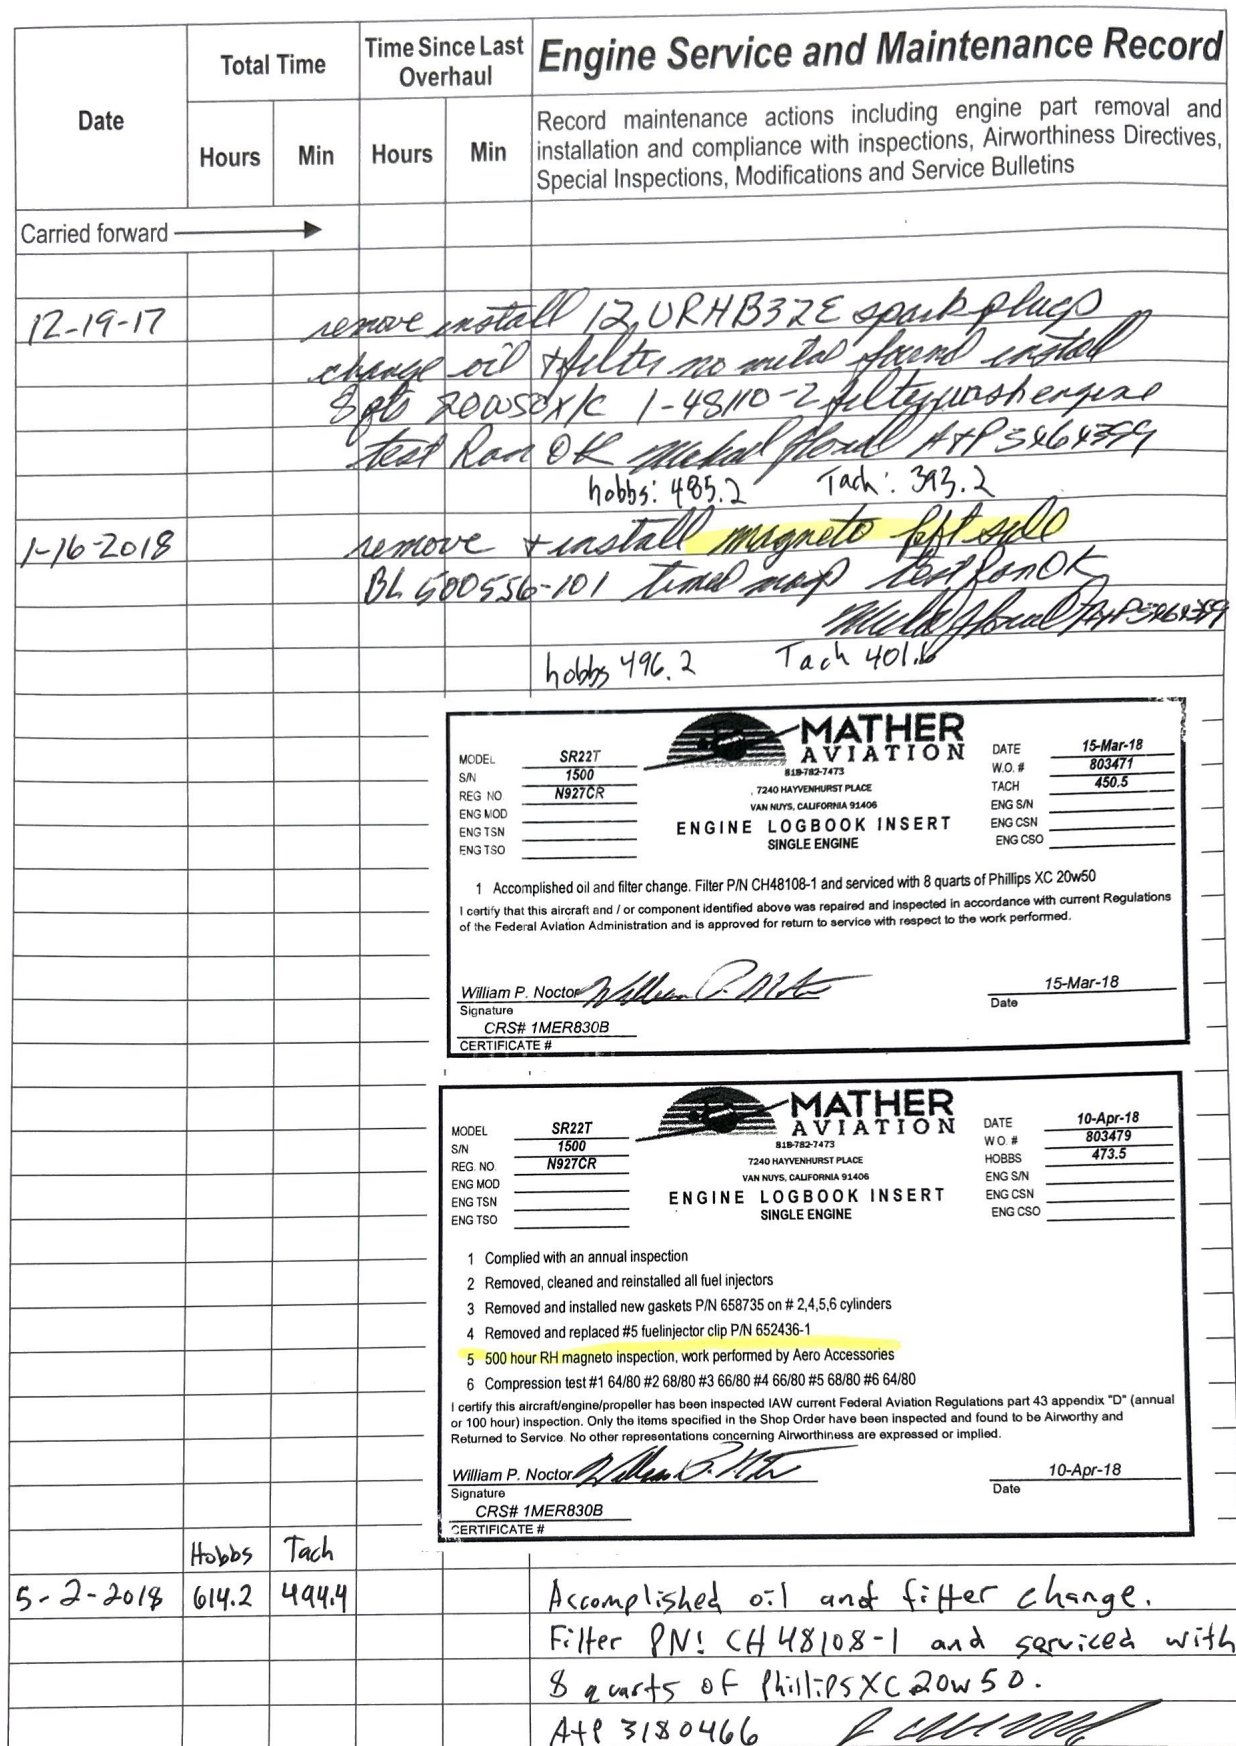 Date
Total Time
Time Since Last Overhaul
Engine Service and Maintenance Record
Hours
Min
Hours
Min
Record maintenance actions including engine part removal and
installation and compliance with inspections, Airworthiness Directives,
Special Inspections, Modifications and Service Bulletins
Carried forward
12-19-17 remove install 12 URHB32E spark plugs
change oil + filter no metal found install
8 qts 20W50 X/C 1-48110-2 filter wash engine
test Ran OK A+P
hobbs: 485.2 Tach: 393.2
1-16-2018 remove + install magneto left side
BL500556-101 timed mag test Ran OK
A+P
hobbs 496.2 Tach 401.6
MATHER
AVIATION
818-782-7473
7240 HAYVENHURST PLACE
VAN NUYS, CALIFORNIA 91406
ENGINE LOGBOOK INSERT
SINGLE ENGINE
MODEL SR22T
S/N 1500
REG NO N927CR
ENG MOD
ENG TSN
ENG TSO
DATE 15-Mar-18
W.O. # 803471
TACH 450.5
ENG S/N
ENG CSN
ENG CSO
1 Accomplished oil and filter change. Filter P/N CH48108-1 and serviced with 8 quarts of Phillips XC 20w50
I certify that this aircraft and / or component identified above was repaired and inspected in accordance with current Regulations
of the Federal Aviation Administration and is approved for return to service with respect to the work performed.
William P. Noctor
Signature
15-Mar-18
Date
CRS# 1MER830B
CERTIFICATE #
MATHER
AVIATION
818-782-7473
7240 HAYVENHURST PLACE
VAN NUYS, CALIFORNIA 91406
ENGINE LOGBOOK INSERT
SINGLE ENGINE
MODEL SR22T
S/N 1500
REG. NO. N927CR
ENG MOD
ENG TSN
ENG TSO
DATE 10-Apr-18
W O. # 803479
HOBBS 473.5
ENG S/N
ENG CSN
ENG CSO
1 Complied with an annual inspection
2 Removed, cleaned and reinstalled all fuel injectors
3 Removed and installed new gaskets P/N 658735 on # 2,4,5,6 cylinders
4 Removed and replaced #5 fuelinjector clip P/N 652436-1
5 500 hour RH magneto inspection, work performed by Aero Accessories
6 Compression test #1 64/80 #2 68/80 #3 66/80 #4 66/80 #5 68/80 #6 64/80
I certify this aircraft/engine/propeller has been inspected IAW current Federal Aviation Regulations part 43 appendix "D" (annual
or 100 hour) inspection. Only the items specified in the Shop Order have been inspected and found to be Airworthy and
Returned to Service. No other representations concerning Airworthiness are expressed or implied.
William P. Noctor
Signature
10-Apr-18
Date
CRS# 1MER830B
CERTIFICATE #
Hobbs Tach
5-2-2018 614.2 494.4 Accomplished oil and filter change.
Filter PN: CH48108-1 and serviced with
8 quarts of Phillips XC 20w50.
A+P 3180466